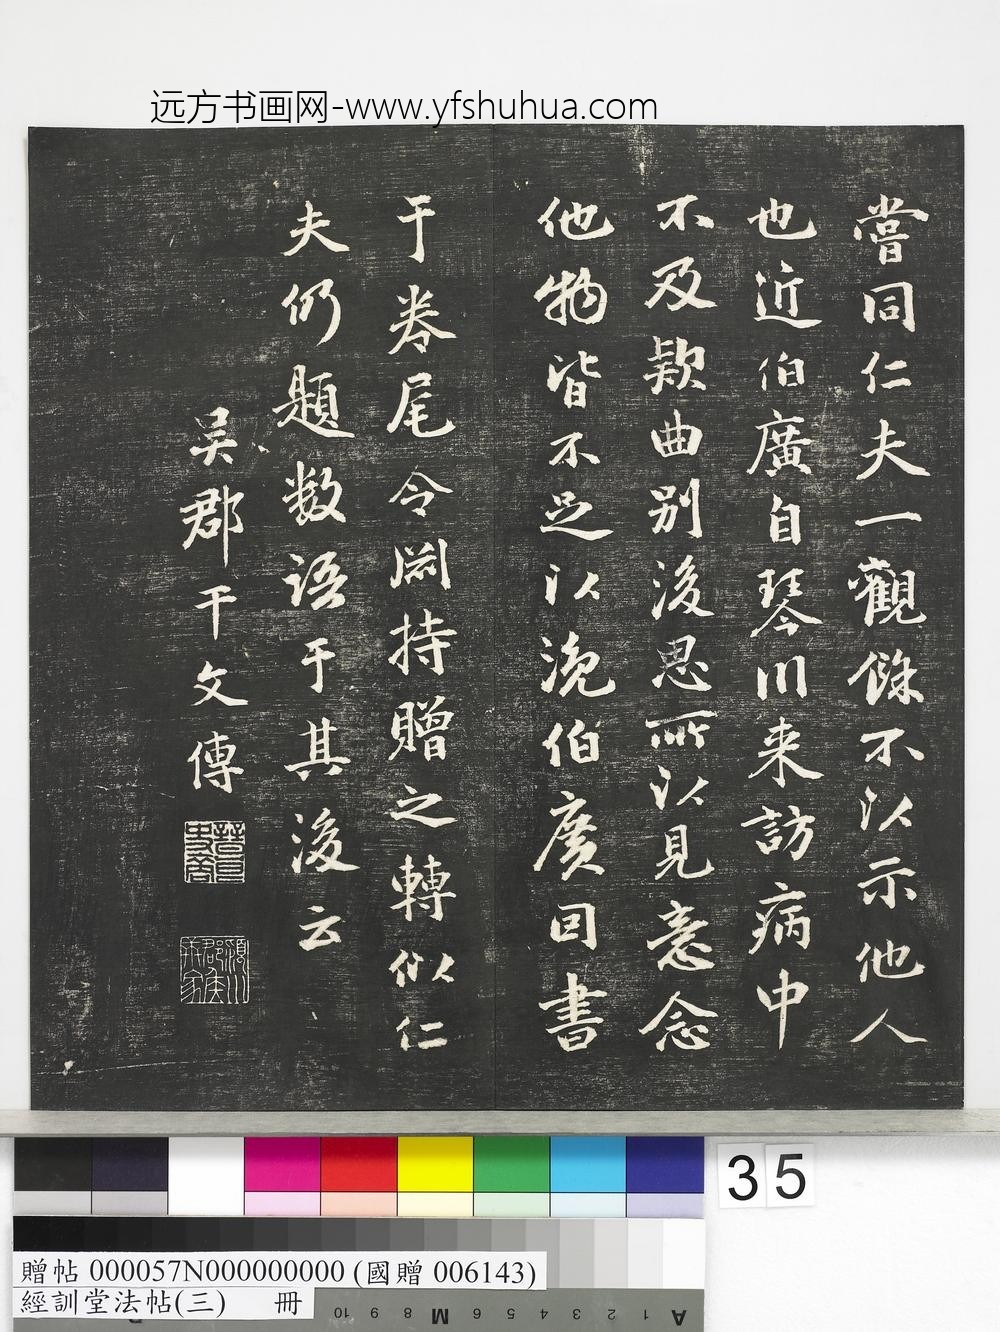 远方书画网-www.yfshuhua.com
嘗同仁夫一觀餘不以示他人
也近伯廣自琴川来訪病中
不及款曲别後思所以見意念
他物皆不足以浼伯廣回書
于卷尾令罔持贈之轉似仁
夫仍題数語于其後云
吴郡干文傳
35
贈帖 000057N000000000 (國贈 006143)
經訓堂法帖(三) 冊
10 9 8 M 6 5 4 3 2 1 A